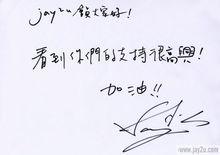 jay2u 的大家好!
看到你們的支持很高興!
加油!!
www.jay2u.com